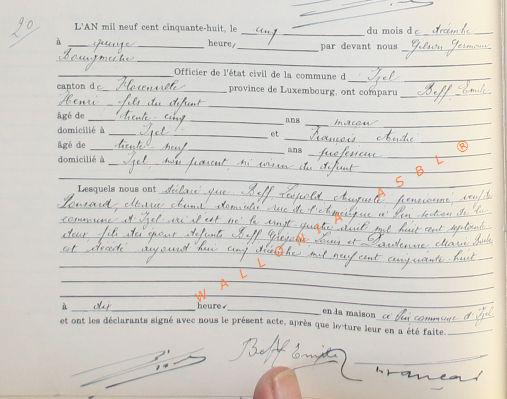 20
L'AN mil neuf cent cinquante-huit, le cinq du mois de décembre
à quinze heures, par devant nous Gilson Germain
Bourgmestre
Officier de l'état civil de la commune d'Izel
canton de Florenville province de Luxembourg, ont comparu Beff Emile
Henri fils du défunt
âgé de trente cinq ans maçon
domicilié à Izel et François André
âgé de trente neuf ans professeur
domicilié à Izel, non parent ni voisin du défunt
Lesquels nous ont déclaré que Beff Léopold Auguste pensionné, veuf de
Lonsard, Marie domicilié rue de l'Amérique à Pin section de la
commune d'Izel où il est né le vingt-quatre août mil huit cent septante
deux fils des époux défunts Beff Grégoire Louis et Dardenne Marie
est décédé aujourd'hui cinq décembre mil neuf cent cinquante huit
à dix heures, en la maison à Pin commune d'Izel
et ont les déclarants signé avec nous le présent acte, après que lecture leur en a été faite.
Beff Emile François
WALLONIA ASBL ®